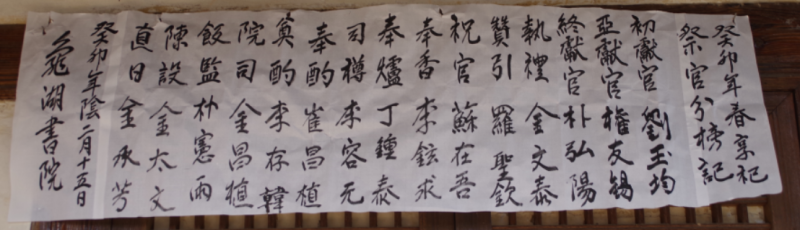 癸卯年春享祀
祭官分榜記
初獻官 劉玉均
亞獻官 權友錫
終獻官 朴弘陽
執禮 金文泰
贊引 羅聖欽
祝官 蘇在吾
奉香 李鉉求
奉爐 丁鍾泰
司樽 李容元
奉酌 崔昌植
奠酌 李存韓
院司 金昌植
飯監 朴憲雨
陳設 金太文
直日 金承芳
癸卯年陰二月十五日
龜湖書院